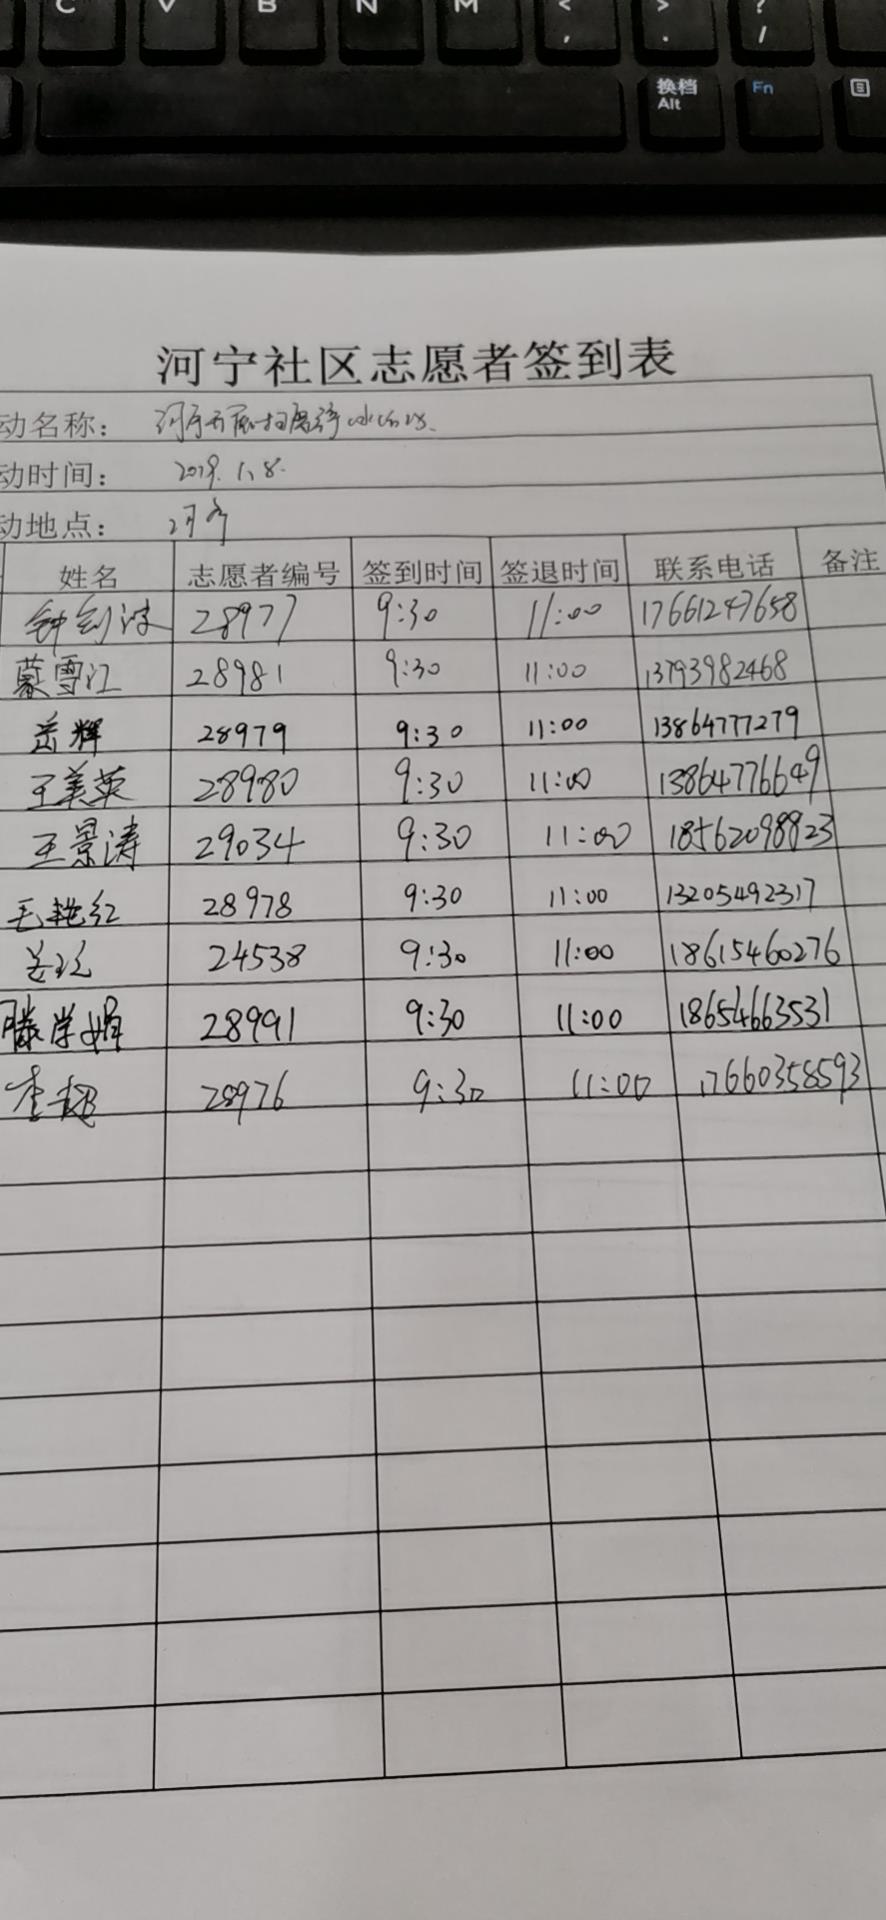 C V B N M < , > . ? /
换档 Alt Fn
河宁社区志愿者签到表
动名称:
动时间: 2019.1.8.
动地点: 河宁
姓名 志愿者编号 签到时间 签退时间 联系电话 备注
28977 9:30 11:00 17661247658
蒙雪江 28981 9:30 11:00 13793982468
岳辉 28979 9:30 11:00 13864777279
王美英 28980 9:30 11:00 13864776649
王景涛 29034 9:30 11:00 18562098823
毛艳红 28978 9:30 11:00 13205492317
24538 9:30 11:00 18615460276
滕学娟 28991 9:30 11:00 18654663531
李超 28976 9:30 11:00 17660358593